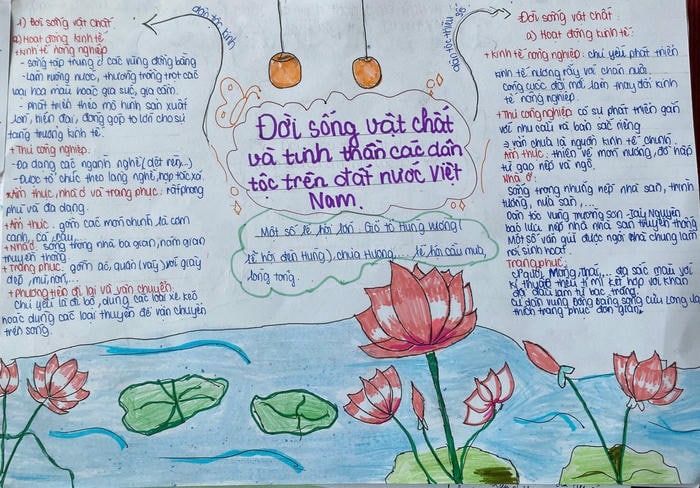 1) Đời sống vật chất
a) Hoạt động kinh tế
+ kinh tế nông nghiệp
- sống tập trung ở các vùng đồng bằng
- Làm ruộng nước, thường trồng trọt các
loại hoa màu hoặc gia súc, gia cầm.
- phát triển theo mô hình sản xuất
lớn, hiện đại, đóng góp to lớn cho sự
tăng trưởng kinh tế.
+ Thủ công nghiệp:
- Đa dạng các ngành nghề (dệt nên,...)
- Được tổ chức theo làng nghề, hợp tác xã.
* Ẩm thực, nhà ở và trang phục: rất phong
phú và đa dạng.
+ Ẩm thực: gồm các món chính là cơm
canh, cá, rau,
+ Nhà ở: sống trong nhà ba gian, năm gian
truyền thống
+ Trang phục: gồm áo, quần (váy) với giày
dép, mũ nón, ...
+ phương tiện đi lại và vận chuyển:
Chủ yếu là đi bộ, dùng các loại xe kéo
hoặc dùng các loại thuyền để vận chuyển
trên sông.
dân tộc kinh
dân tộc thiểu số
Đời sống vật chất
và tinh thần các dân
tộc trên đất nước Việt
Nam.
Một số lễ hội lớn: Giỗ tổ Hùng Vương (
lễ hội đền Hùng), chùa Hương,... lễ hội cầu mưa,
lồng tồng.
Đời sống vật chất:
a) Hoạt động kinh tế:
+ Kinh tế nông nghiệp: chủ yếu phát triển
kinh tế nương rẫy với chăn nuôi.
Công cuộc đổi mới làm thay đổi kinh
tế nông nghiệp.
+ Thủ công nghiệp có sự phát triển gắn
với nhu cầu và bản sắc riêng
→ vẫn chưa là nguồn kinh tế chính.
Ẩm thực: thiên về món nướng, đồ hấp
từ gạo nếp và ngô.
Nhà ở:
sống trong những nếp nhà sàn, trình
tường, nửa sàn, ...
Dân tộc vùng Trường Sơn - Tây Nguyên
bảo lưu nếp nhà nhà sàn truyền thống
Một số vẫn giữ được ngôi nhà chung làm
nơi sinh hoạt.
Trang phục:
người Mông, Thái, ... đa sắc màu với
kĩ thuật thêu tỉ mỉ kết hợp với khăn
đội đầu làm từ bạc, trắng.
Cư dân vùng Đồng bằng sông Cửu Long lại
thích trang phục đơn giản.